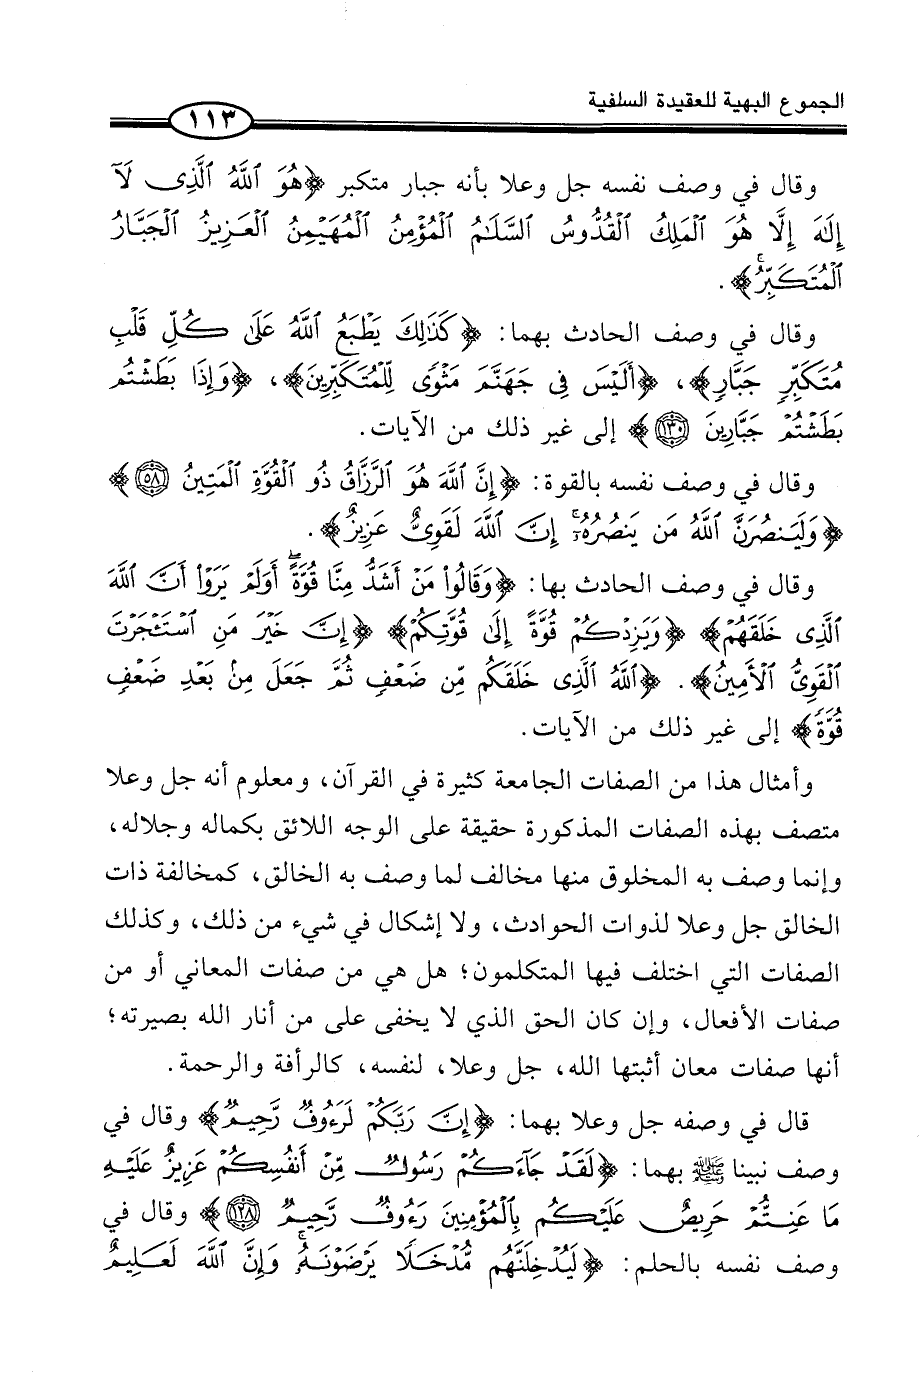 الجموع البهية للعقيدة السلفية
١١٣
وقال في وصف نفسه جل وعلا بأنه جبار متكبر ﴿هُوَ ٱللَّهُ ٱلَّذِى لَآ
إِلَٰهَ إِلَّا هُوَ ٱلْمَلِكُ ٱلْقُدُّوسُ ٱلسَّلَٰمُ ٱلْمُؤْمِنُ ٱلْمُهَيْمِنُ ٱلْعَزِيزُ ٱلْجَبَّارُ
ٱلْمُتَكَبِّرُ ۚ﴾ .
وقال في وصف الحادث بهما: ﴿كَذَٰلِكَ يَطْبَعُ ٱللَّهُ عَلَىٰ كُلِّ قَلْبِ
مُتَكَبِّرٍ جَبَّارٍ﴾، ﴿أَلَيْسَ فِى جَهَنَّمَ مَثْوًى لِّلْمُتَكَبِّرِينَ﴾، ﴿وَإِذَا بَطَشْتُم
بَطَشْتُمْ جَبَّارِينَ ١٣٠﴾ إلى غير ذلك من الآيات.
وقال في وصف نفسه بالقوة: ﴿إِنَّ ٱللَّهَ هُوَ ٱلرَّزَّاقُ ذُو ٱلْقُوَّةِ ٱلْمَتِينُ ٥٨﴾
﴿وَلَيَنصُرَنَّ ٱللَّهُ مَن يَنصُرُهُۥٓ ۚ إِنَّ ٱللَّهَ لَقَوِىٌّ عَزِيزٌ﴾.
وقال في وصف الحادث بها: ﴿وَقَالُوا۟ مَنْ أَشَدُّ مِنَّا قُوَّةً ۖ أَوَلَمْ يَرَوْا۟ أَنَّ ٱللَّهَ
ٱلَّذِى خَلَقَهُمْ﴾ ﴿وَيَزِدْكُمْ قُوَّةً إِلَىٰ قُوَّتِكُمْ﴾ ﴿إِنَّ خَيْرَ مَنِ ٱسْتَـْٔجَرْتَ
ٱلْقَوِىُّ ٱلْأَمِينُ﴾. ﴿ٱللَّهُ ٱلَّذِى خَلَقَكُم مِّن ضَعْفٍ ثُمَّ جَعَلَ مِنۢ بَعْدِ ضَعْفٍ
قُوَّةً﴾ إلى غير ذلك من الآيات.
وأمثال هذا من الصفات الجامعة كثيرة في القرآن، ومعلوم أنه جل وعلا
متصف بهذه الصفات المذكورة حقيقة على الوجه اللائق بكماله وجلاله،
وإنما وصف به المخلوق منها مخالف لما وصف به الخالق، كمخالفة ذات
الخالق جل وعلا لذوات الحوادث، ولا إشكال في شيء من ذلك، وكذلك
الصفات التي اختلف فيها المتكلمون؛ هل هي من صفات المعاني أو من
صفات الأفعال، وإن كان الحق الذي لا يخفى على من أنار الله بصيرته؛
أنها صفات معان أثبتها الله، جل وعلا، لنفسه، كالرأفة والرحمة.
قال في وصفه جل وعلا بهما: ﴿إِنَّ رَبَّكُمْ لَرَءُوفٌ رَّحِيمٌ﴾ وقال في
وصف نبينا ﷺ بهما: ﴿لَقَدْ جَآءَكُمْ رَسُولٌ مِّنْ أَنفُسِكُمْ عَزِيزٌ عَلَيْهِ
مَا عَنِتُّمْ حَرِيصٌ عَلَيْكُم بِٱلْمُؤْمِنِينَ رَءُوفٌ رَّحِيمٌ ١٢٨﴾ وقال في
وصف نفسه بالحلم: ﴿لَيُدْخِلَنَّهُم مُّدْخَلًا يَرْضَوْنَهُۥ ۗ وَإِنَّ ٱللَّهَ لَعَلِيمٌ